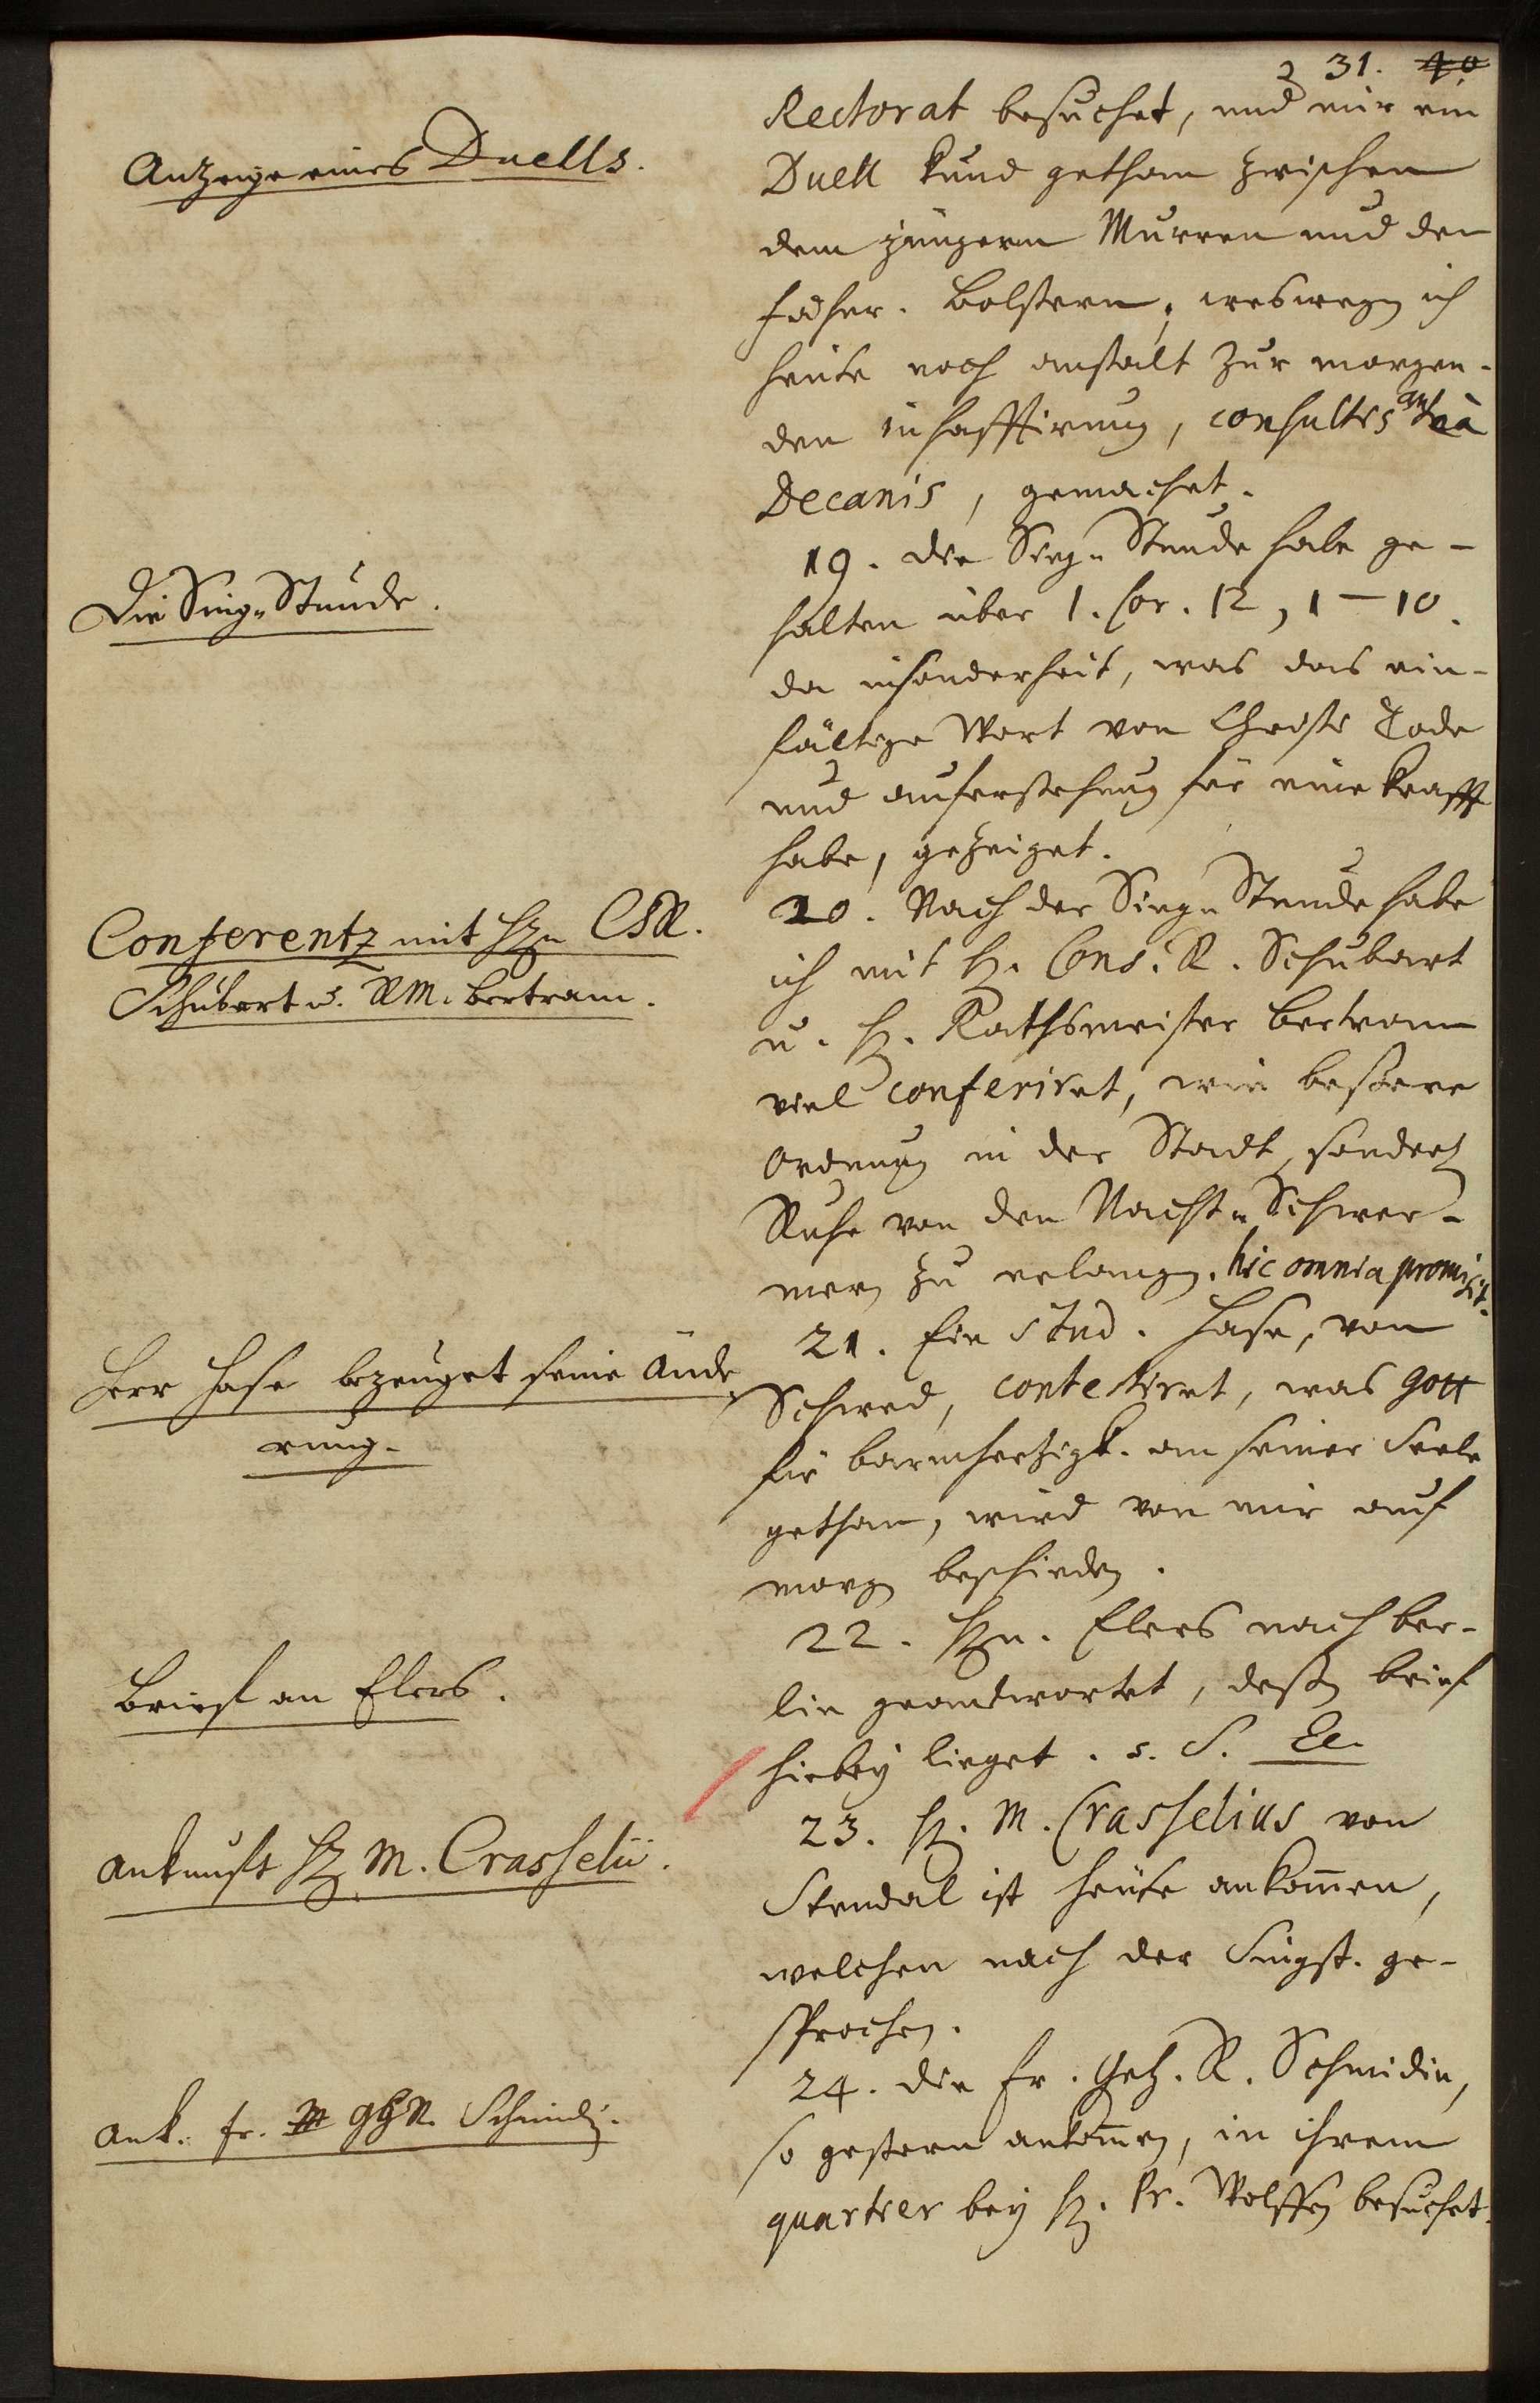 31. 40
Rectorat besuchet, und mir ein
Anzeige eines Duells.
Duell kund gethan zwischen
dem jüngern Murren und den
Fähnr. Bolstern; weswegen ich
heute noch anstalt zur morgen-
den inhafftirung, consultis antea
Decanis, gemachet.
19. die Sing-Stunde habe ge-
Die Sing-Stunde.
halten über 1. Cor. 12, 1-10.
da insonderheit, was das ein-
fältige Wort von Christi Tode
und auferstehung für eine krafft
habe, gezeiget.
20. Nach der Sing-Stunde habe
Conferentz mit Hrn CSR.
Schubart u. RM. Bertram.
ich mit H. Cons. R. Schubart
u. H. Rathsmeister Bertram
viel conferiret, wie bessere
ordnung in der Stadt, sonderl.
Ruhe von den Nacht-Schwer-
mern zu erlangen. hic omnia promisit.
21. Ein Stud. Hase, von
Herr Hase bezeuget seine Ände
rung.
Schwed, contestiret, was Gott
für barmhertzigk. an seiner Seele
gethan, wird von mir auf
morgen beschieden.
22. Hrn. Elers nach Ber-
Brief an Elers.
lin geantwortet, dessen brief
hiebey lieget. s. S. Ee.
23. H. M. Crasselius von
Ankunft H. M. Crasselii.
Stendal ist heute ankommen,
welchen nach der Singst. ge-
sprochen.
24. die Fr. Geh. R. Schmidin,
Ank. Fr. GhR. Schmidi.
so gestern ankommen, in ihrem
quartier bey H. Pr. Wolffen besuchet.